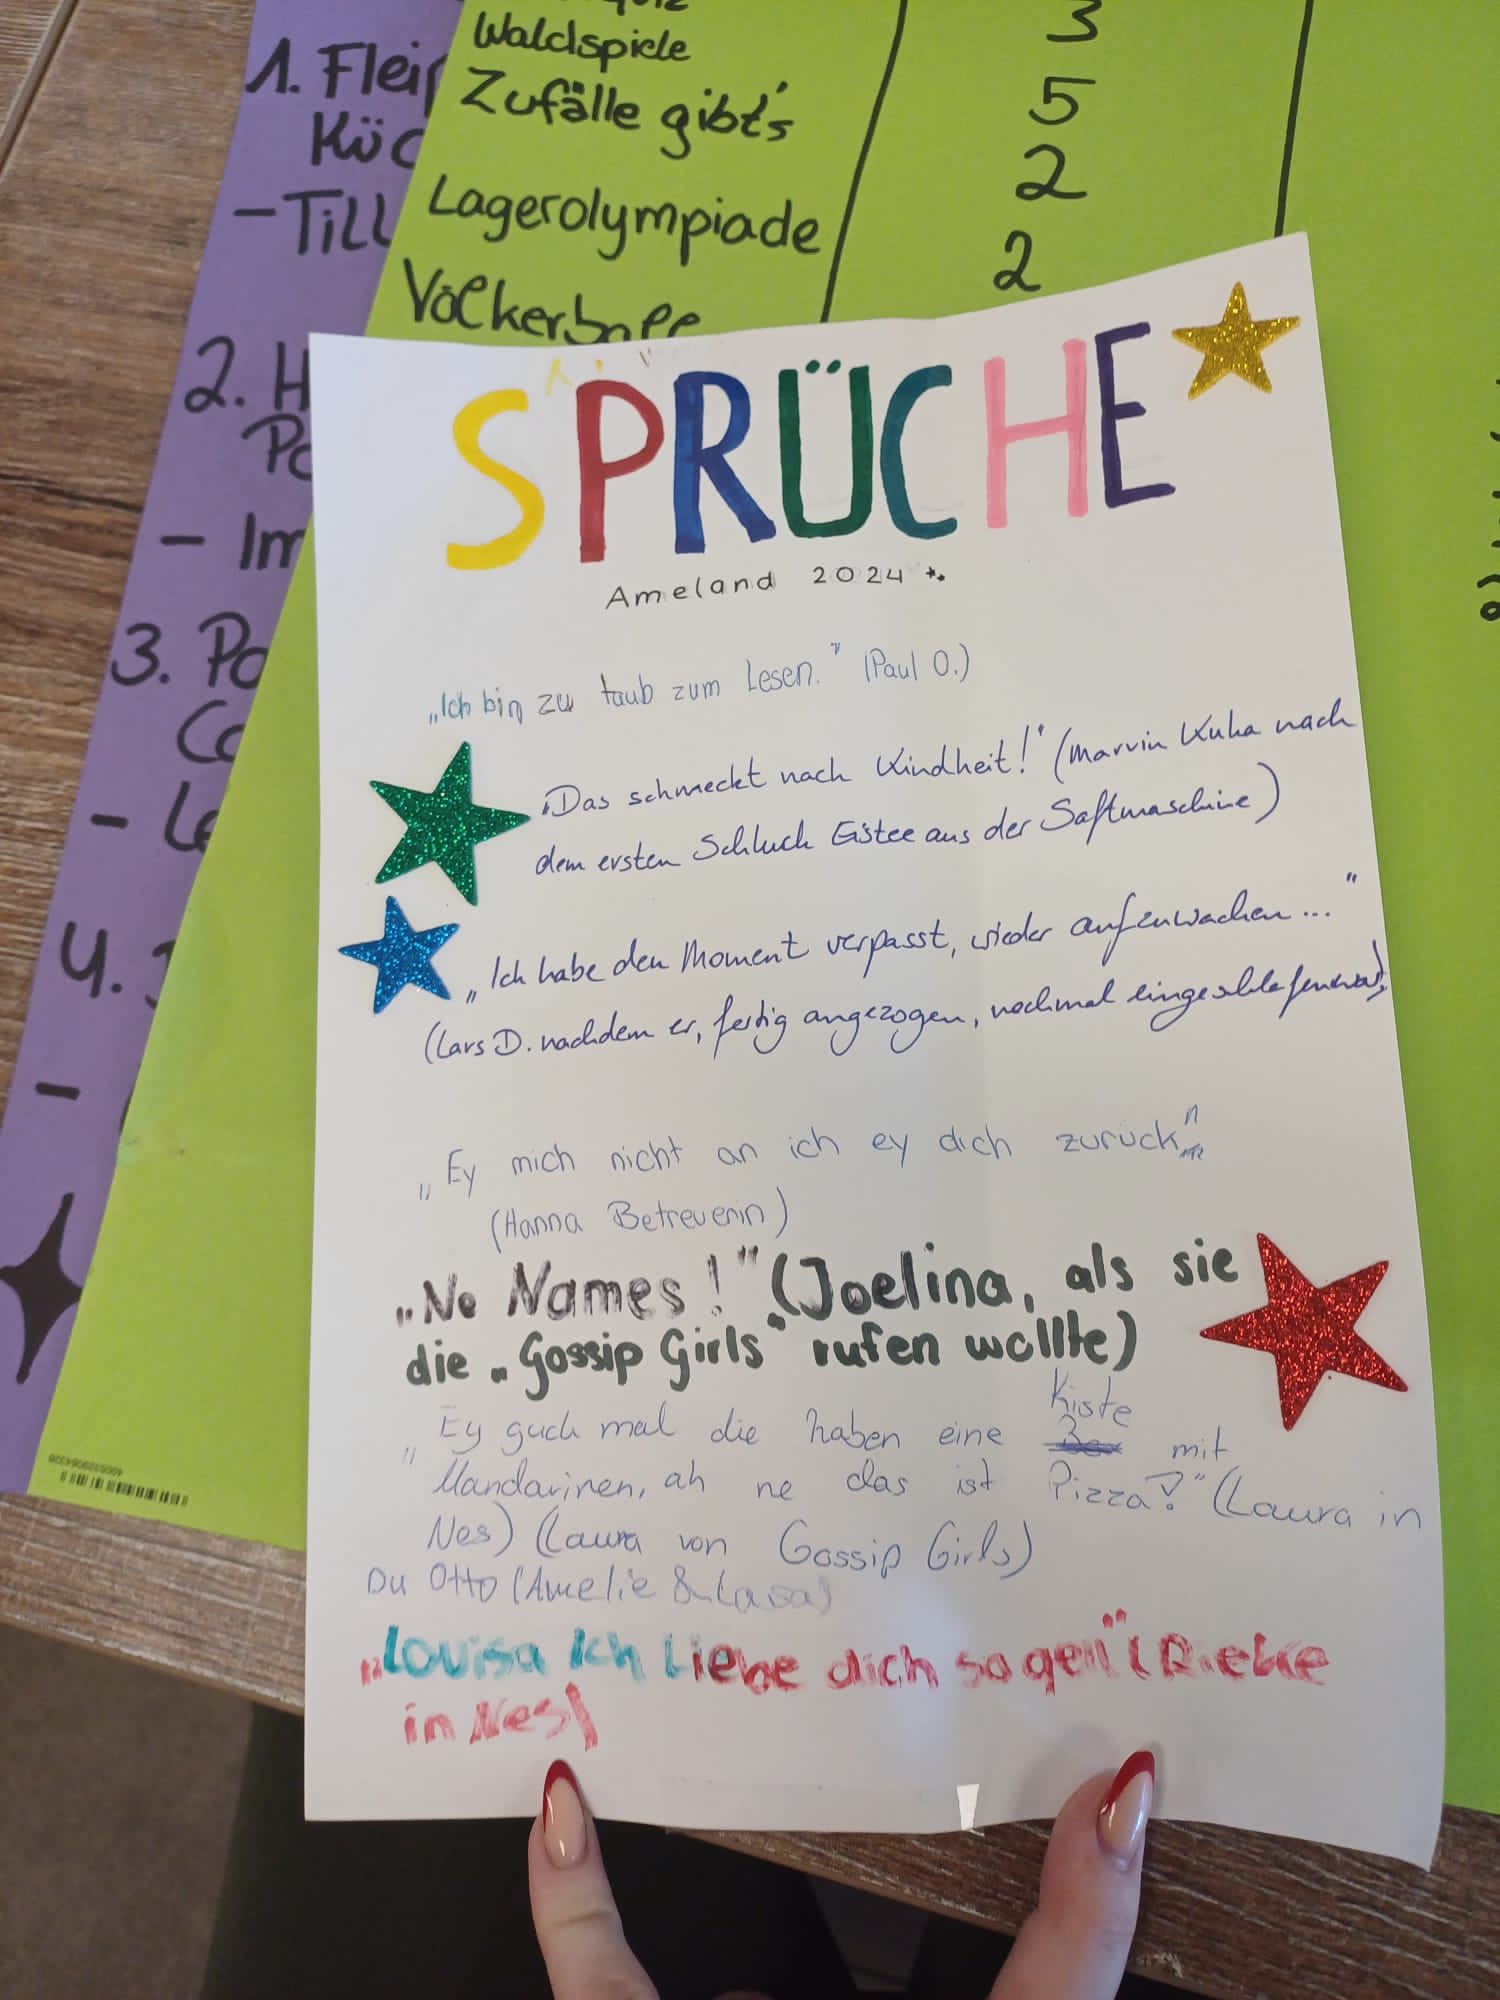 1. Fleiß
Küc
- Till
2. H
Po
- Im
3. Po
Co
- Le
4.
-
Waldspiele
Zufälle gibt's
Lagerolympiade
Völkerball
3
5
2
2
SPRÜCHE
Ameland 2024
„Ich bin zu taub zum Lesen." (Paul O.)
„Das schmeckt nach Kindheit!" (Marvin Kuha nach
dem ersten Schluck Eistee aus der Saftmaschine)
„Ich habe den Moment verpasst, wieder aufzuwachen..."
(Lars D. nachdem er, fertig angezogen, nochmal eingeschlafen war)
„Ey mich nicht an ich ey dich zurück"
(Hanna Betreuerin)
„No Names!" (Joelina, als sie
die „Gossip Girls" rufen wollte)
„Ey guck mal die haben eine Kiste mit
Mandarinen, ah ne das ist Pizza?!" (Laura in
Nes) (Laura von Gossip Girls)
Du Otto (Amelie & Lasa)
„Louisa Ich Liebe dich sagen" (Rieke
in Nes)